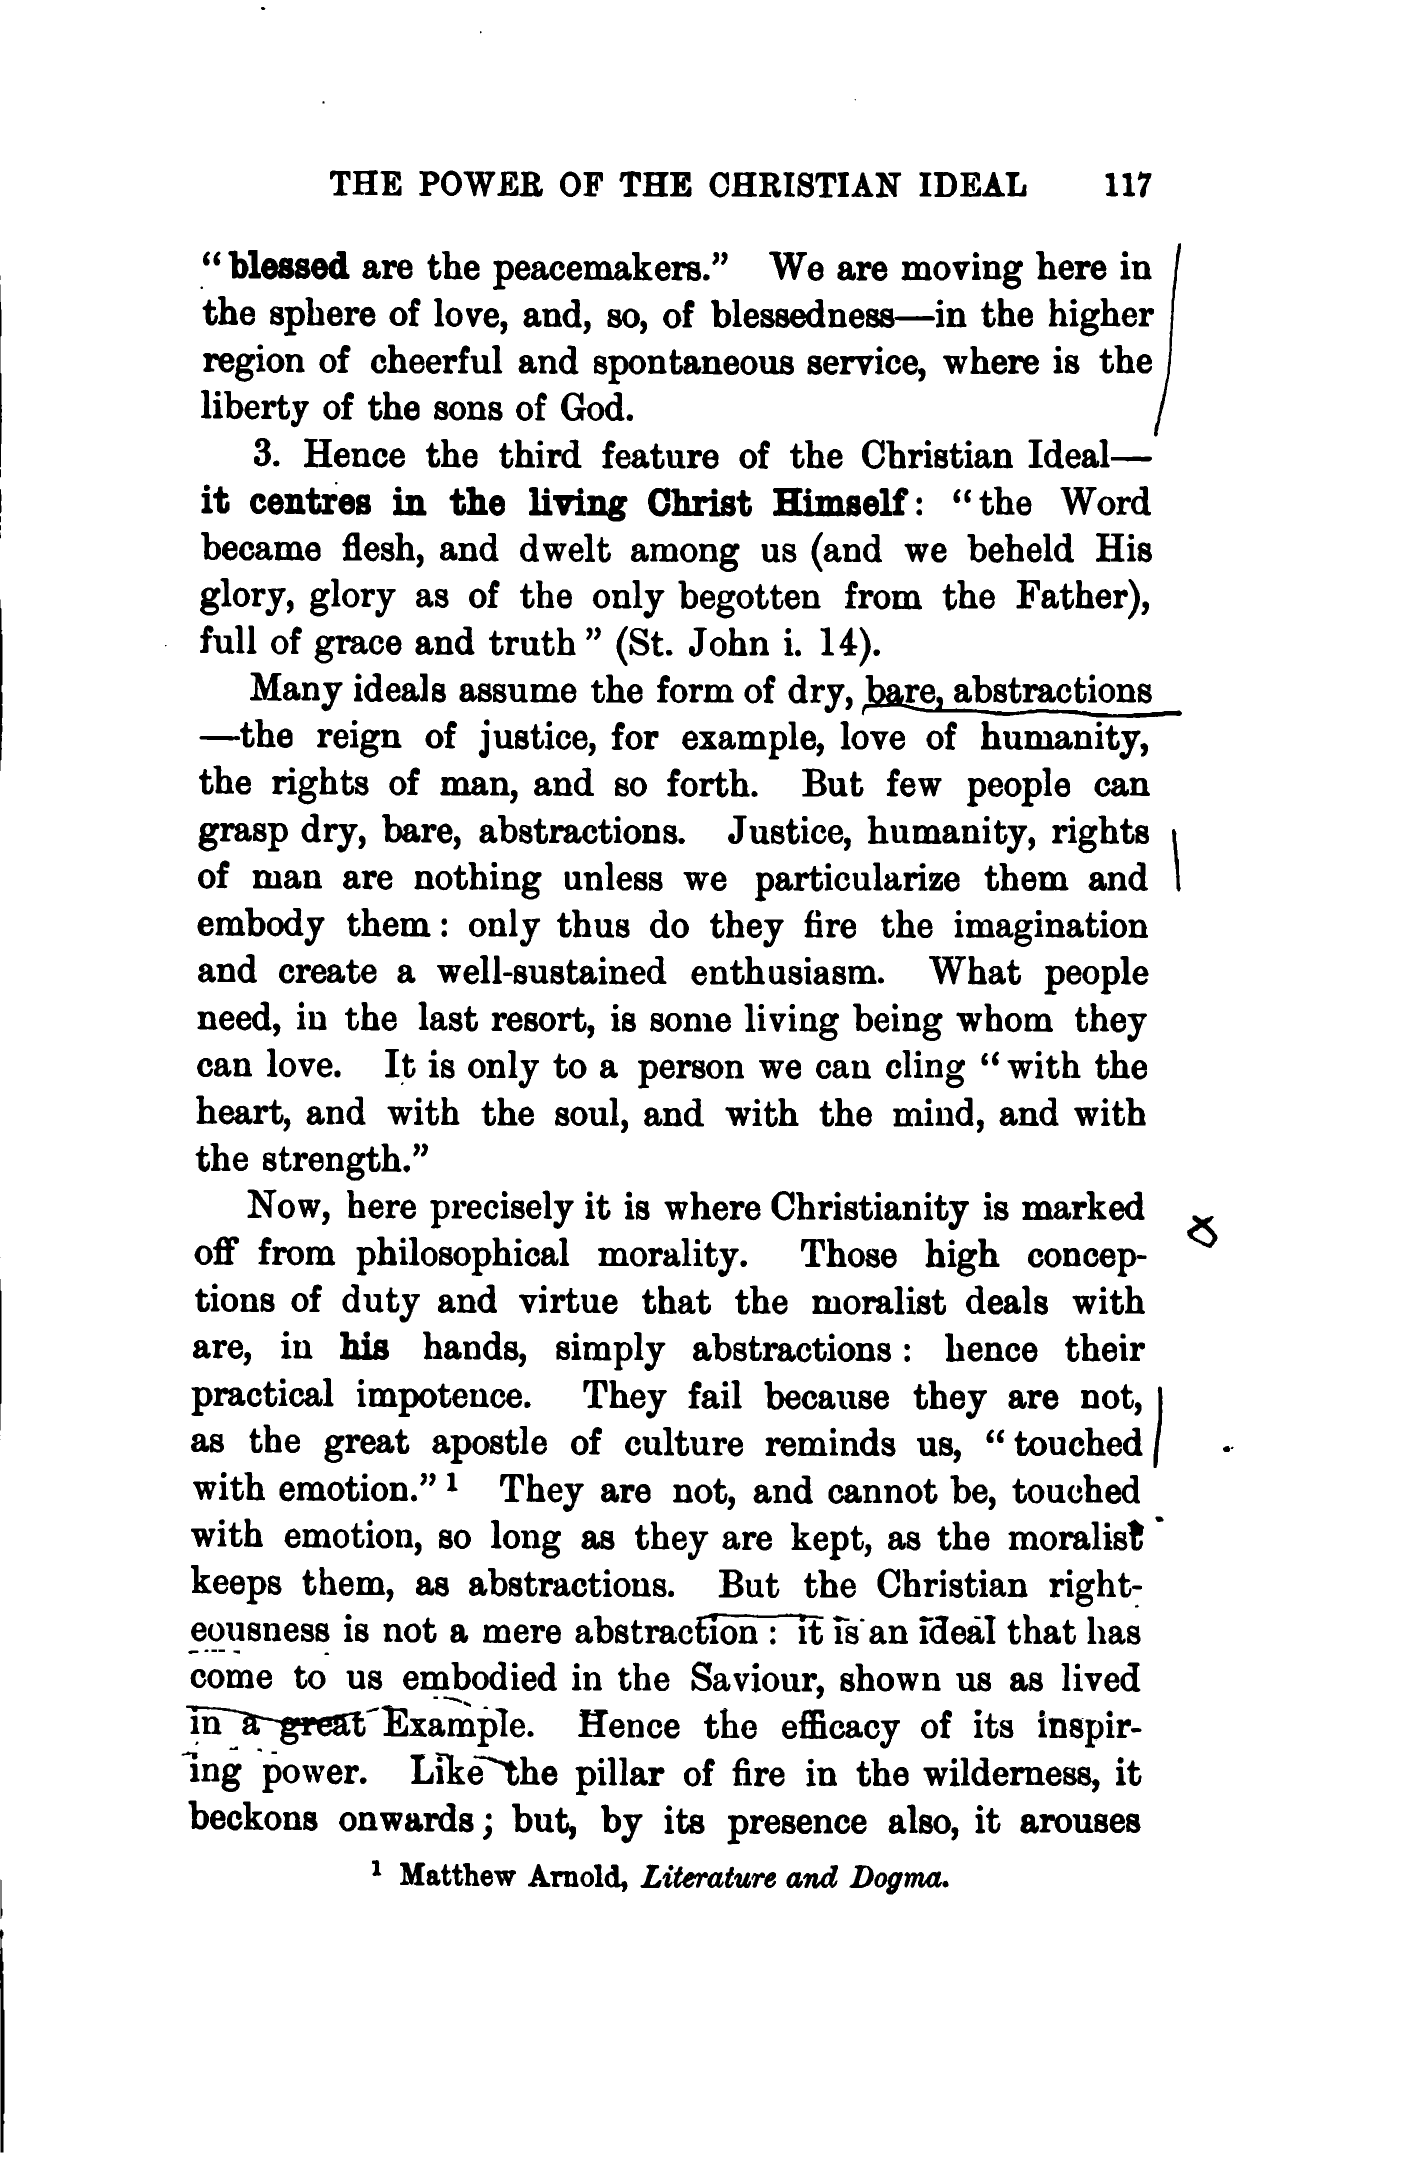 THE POWER OF THE CHRISTIAN IDEAL 117
“blessed are the peacemakers.” We are moving here in
the sphere of love, and, so, of blessedness—in the higher
region of cheerful and spontaneous service, where is the
liberty of the sons of God.
3. Hence the third feature of the Christian Ideal—
it centres in the living Christ Himself: “the Word
became flesh, and dwelt among us (and we beheld His
glory, glory as of the only begotten from the Father),
full of grace and truth” (St. John i. 14).
Many ideals assume the form of dry, bare, abstractions
—the reign of justice, for example, love of humanity,
the rights of man, and so forth. But few people can
grasp dry, bare, abstractions. Justice, humanity, rights
of man are nothing unless we particularize them and
embody them: only thus do they fire the imagination
and create a well-sustained enthusiasm. What people
need, in the last resort, is some living being whom they
can love. It is only to a person we can cling “with the
heart, and with the soul, and with the mind, and with
the strength.”
Now, here precisely it is where Christianity is marked
off from philosophical morality. Those high concep-
tions of duty and virtue that the moralist deals with
are, in his hands, simply abstractions: hence their
practical impotence. They fail because they are not,
as the great apostle of culture reminds us, “touched
with emotion.”¹ They are not, and cannot be, touched
with emotion, so long as they are kept, as the moralist
keeps them, as abstractions. But the Christian right-
eousness is not a mere abstraction: it is an ideal that has
come to us embodied in the Saviour, shown us as lived
in a great Example. Hence the efficacy of its inspir-
ing power. Like the pillar of fire in the wilderness, it
beckons onwards; but, by its presence also, it arouses
¹ Matthew Arnold, Literature and Dogma.